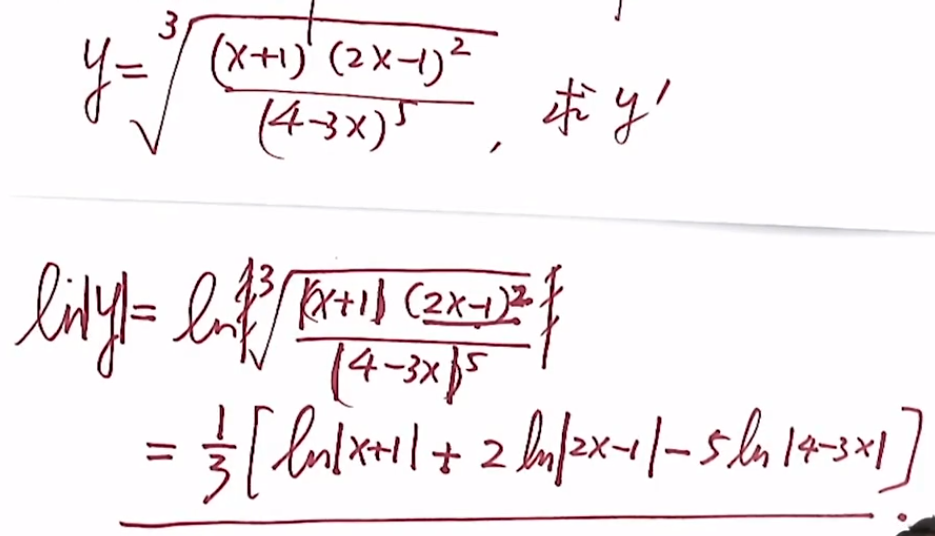 y = ∛((x+1)(2x-1)²/(4-3x)⁵), 求 y'
ln|y| = ln ∛(|x+1| (2x-1)²/|4-3x|⁵)
= 1/3 [ln|x+1| + 2 ln|2x-1| - 5 ln |4-3x|].